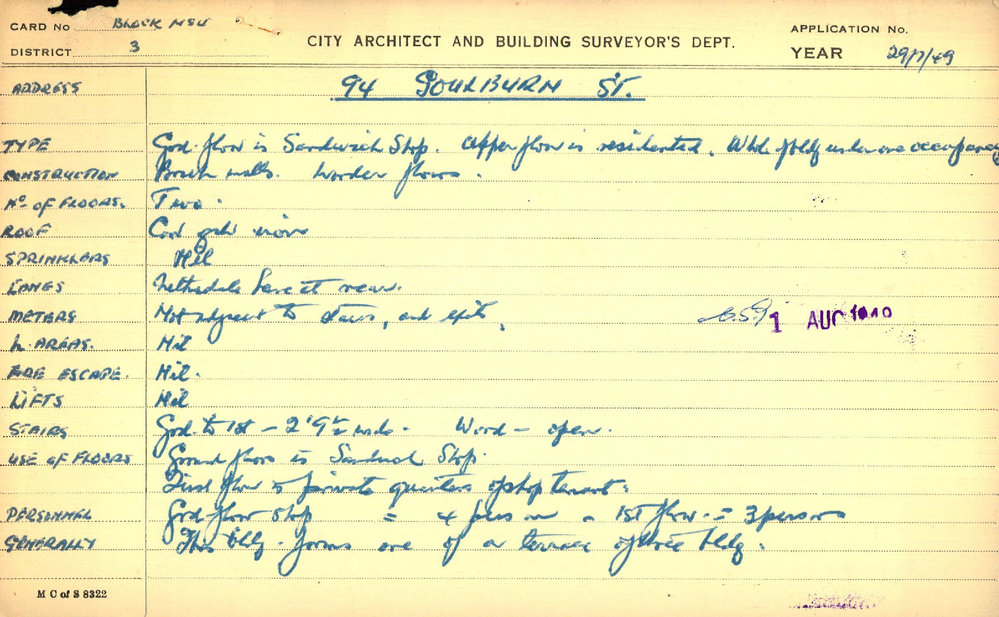 CARD No BLOCK
APPLICATION No.
DISTRICT 3
CITY ARCHITECT AND BUILDING SURVEYOR'S DEPT.
YEAR 29/7/49
ADDRESS 94 GOULBURN ST.
TYPE Grd. floor is Sandwich Shop. Upper floor is residential. Whole of bldg under one occupancy
CONSTRUCTION Brick walls. Wooden floors.
No OF FLOORS. Two.
ROOF Cod galv iron
SPRINKLERS Nil
LANES Nethedale Lane at rear.
METERS Not adjacent to stairs, and exits.
1 AUG 1949
L. AREAS. Nil
FIRE ESCAPE. Nil.
LIFTS Nil
STAIRS Grd. to 1st - 2'9½ wide. Wood - open.
USE OF FLOORS Ground floor is Sandwich Shop.
First floor is private quarters of shop tenant.
PERSONNEL Grd. floor shop = 4 persons 1st floor = 3 persons
GENERALLY This bldg. forms one of a terrace of three bldg.
M C of S 8322